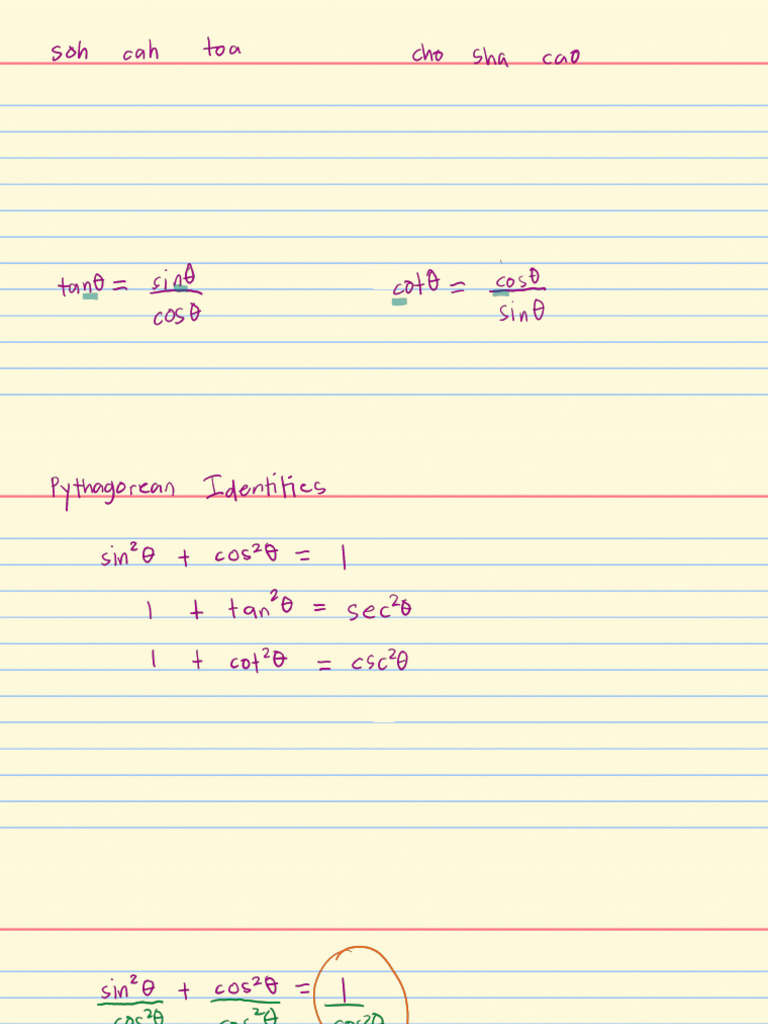 soh cah toa cho sha cao
tanθ = sinθ/cosθ cotθ = cosθ/sinθ
Pythagorean Identities
sin²θ + cos²θ = 1
1 + tan²θ = sec²θ
1 + cot²θ = csc²θ
sin²θ/cos²θ + cos²θ/cos²θ = 1/cos²θ